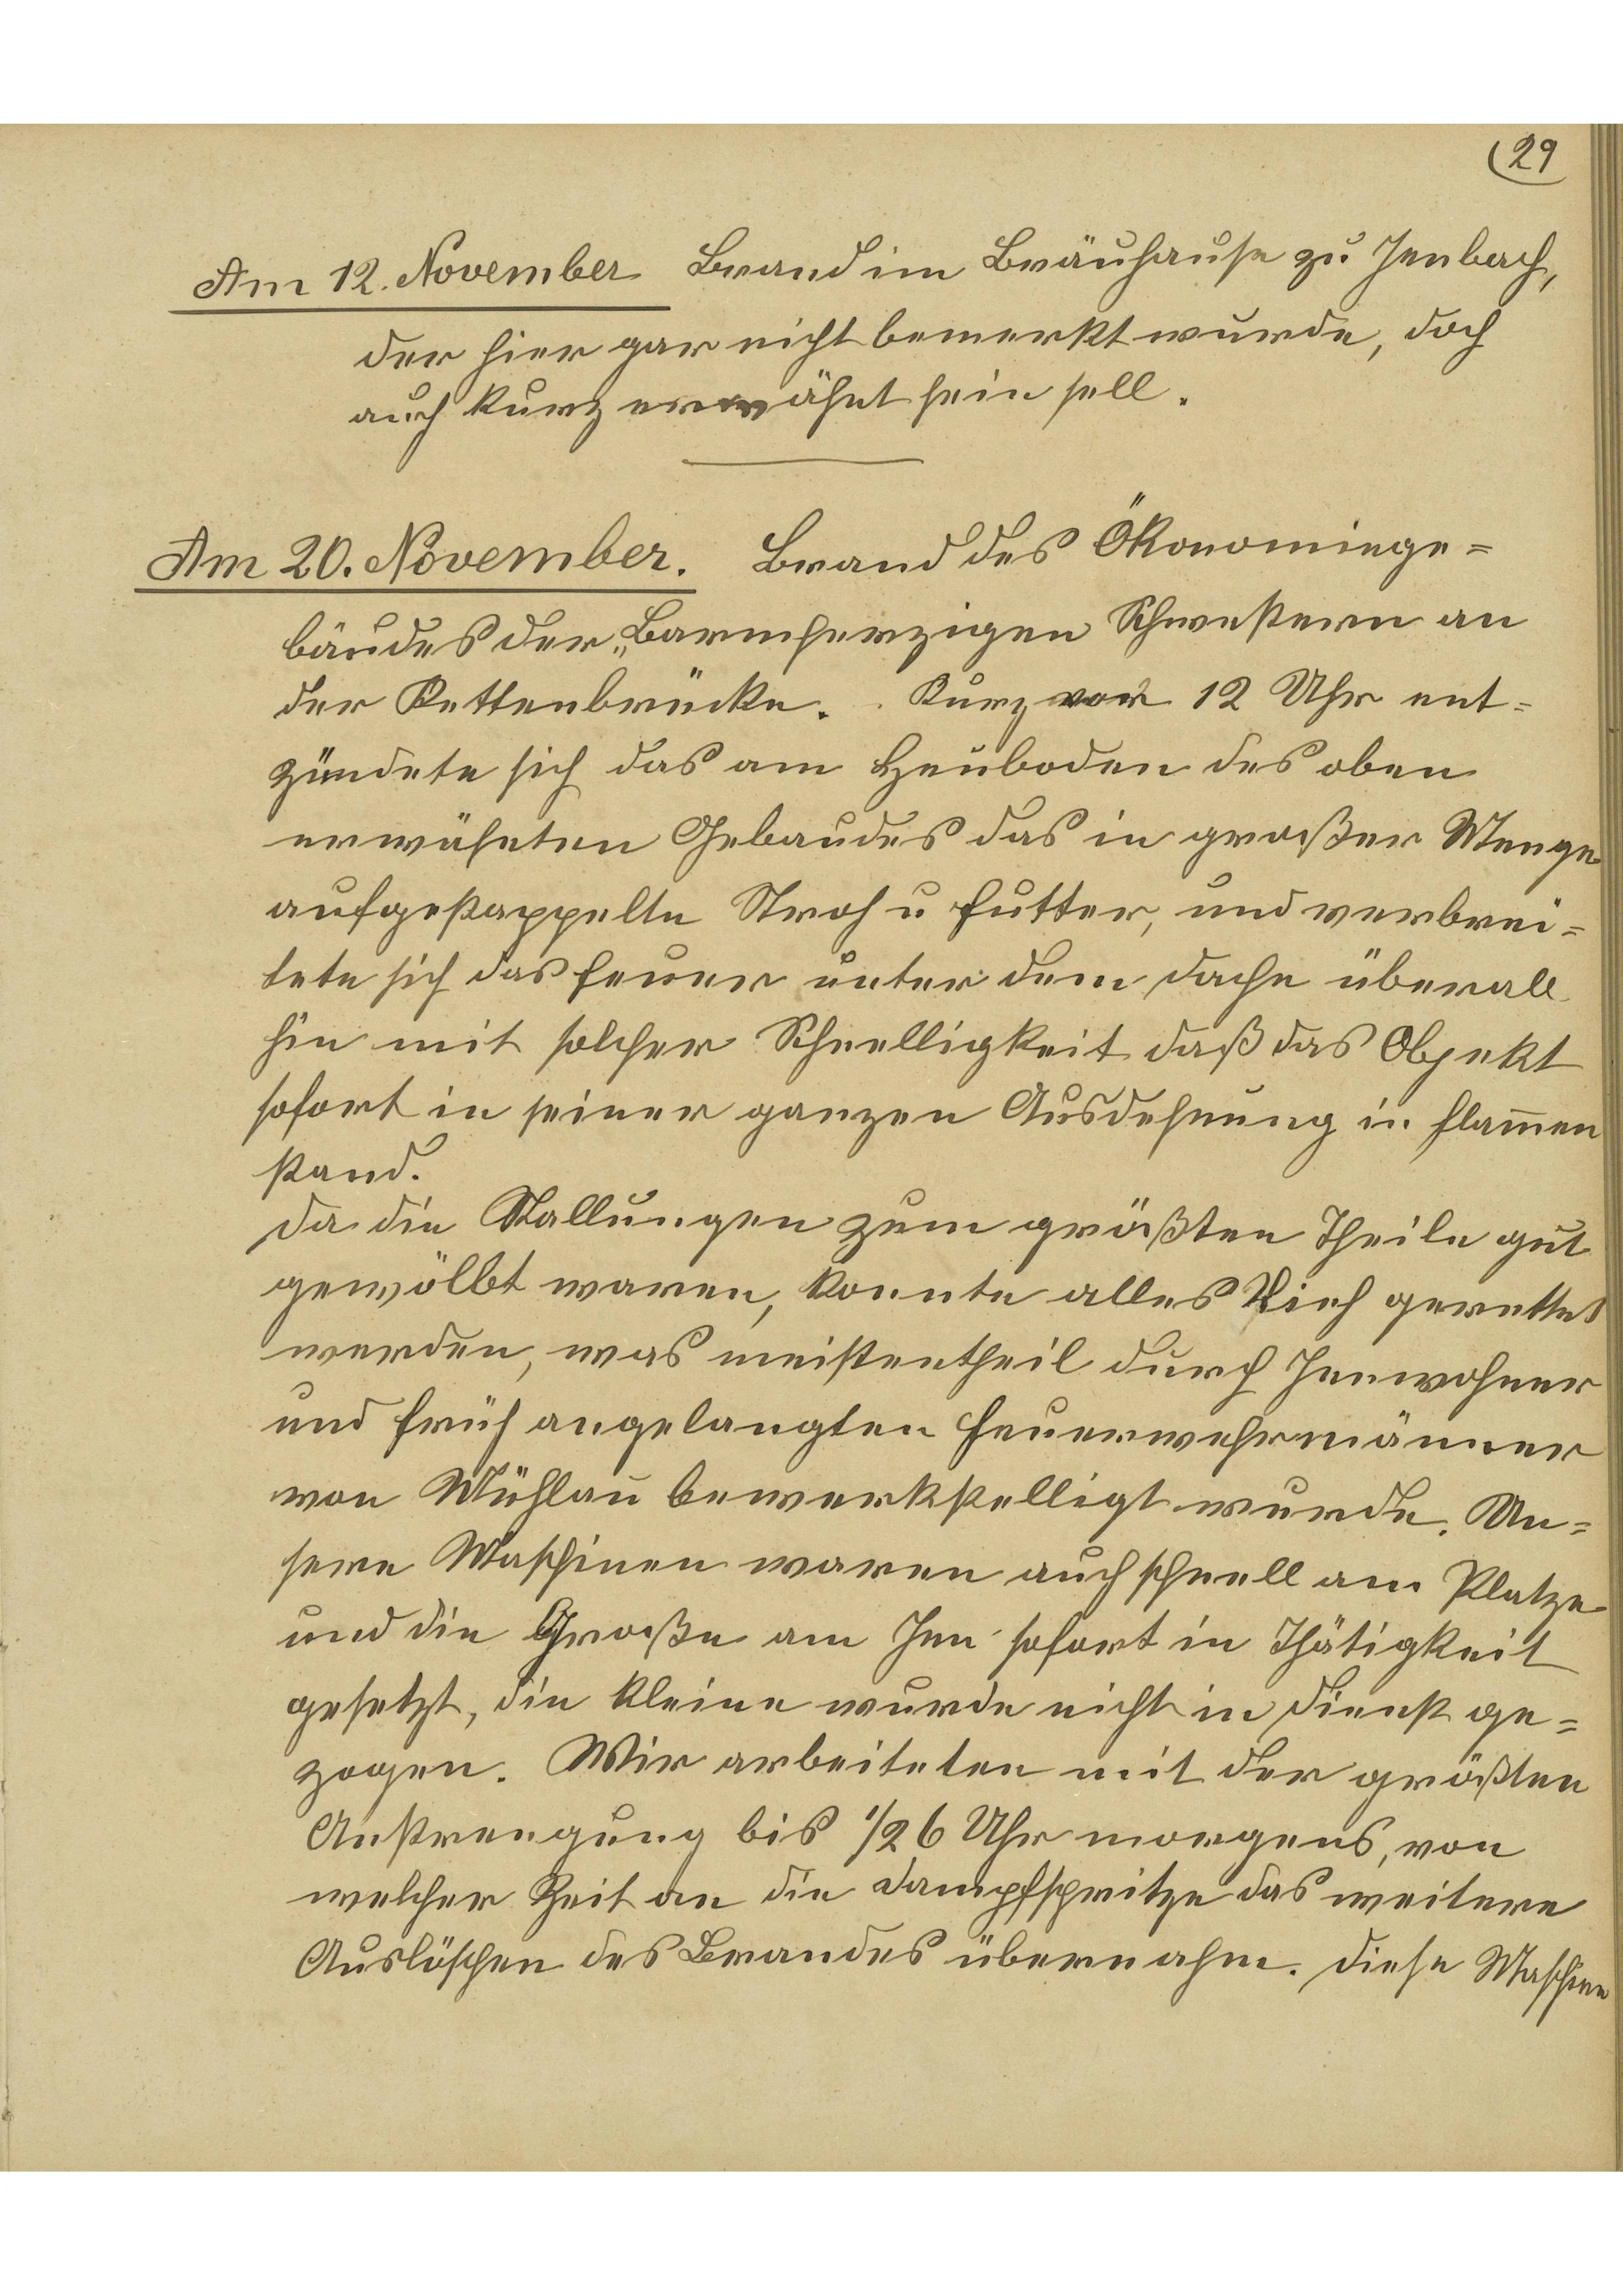 29
Am 12. November Brand im Bräuhause zu Jenbach,
der hier gar nicht bemerkt wurde, doch
auch kurz erwähnt sein soll.
Am 20. November. Brand des Ökonomiege=
bäudes der „Barmherzigen Schwestern an
der Kettenbrücke. Kurz vor 12 Uhr ent=
zündete sich das am Heuboden des oben
erwähnten Gebaudes das in großer Menge
aufgestappelte Stroh u Futter, und verbrei=
tete sich das Feuer unter dem Dache überall
hin mit solcher Schnelligkeit daß das Objekt
sofort in seiner ganzen Ausdehnung in Flam̄en
stand.
Da die Stallungen zum größten Theile gut
gewölbt waren, konnte alles Vieh gerettet
werden, was meistentheil durch Innwohner
und früh angelangten Feuerwehrmänner
von Mühlau bewerkstelligt wurde. Un=
sere Maschinen waren auch schnell am Platze
und die Große am Inn sofort in Thätigkeit
gesetzt, die kleine wurde nicht in Dienst ge=
zogen. Wir arbeiteten mit der größten
Anstrengung bis 1/2 6 Uhr morgens, von
welcher Zeit an die Dampfspritze das weitere
Auslöschen des Brandes übernahm. Diese Maschine